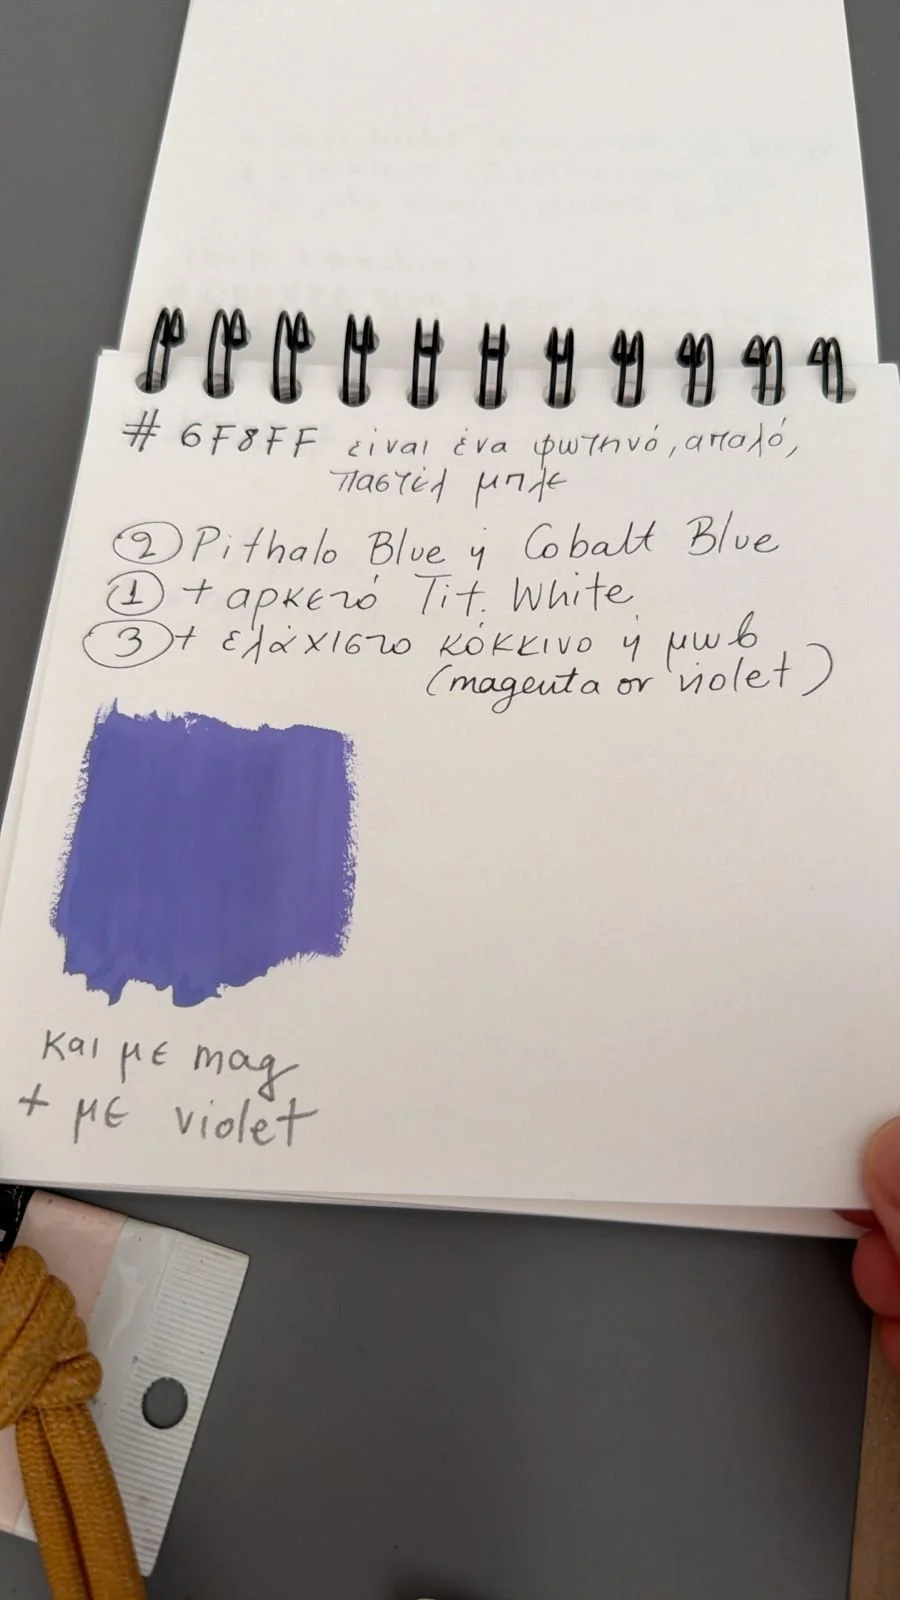 # 6F8FF είναι ένα φωτηνό, απαλό,
παστέλ μπλε
② Pithalo Blue ή Cobalt Blue
① + αρκετό Tit. White
③ + ελάχιστο κόκκινο ή μωβ
(magenta or violet)
και με mag
+ με violet